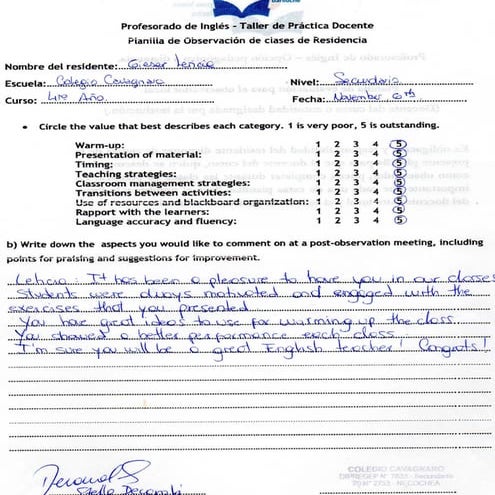 Profesorado de Inglés - Taller de Práctica Docente
Planilla de Observación de clases de Residencia
Nombre del residente:
Escuela: Colegio Cavagnaro Nivel: Secundario
Curso: 4to Año. Fecha: November 6th
• Circle the value that best describes each category. 1 is very poor, 5 is outstanding.
Warm-up: 1 2 3 4 5
Presentation of material: 1 2 3 4 5
Timing: 1 2 3 4 5
Teaching strategies: 1 2 3 4 5
Classroom management strategies: 1 2 3 4 5
Transitions between activities: 1 2 3 4 5
Use of resources and blackboard organization: 1 2 3 4 5
Rapport with the learners: 1 2 3 4 5
Language accuracy and fluency: 1 2 3 4 5
b) Write down the aspects you would like to comment on at a post-observation meeting, including
points for praising and suggestions for improvement.
Leticia: It has been a pleasure to have you in our classes
Students were always motivated and engaged with the
exercises that you presented.
You have great ideas to use for warming up the class.
You showed a better performance each class.
I'm sure you will be a great English teacher! Congrats!
Stella
COLEGIO CAVAGNARO
NECOCHEA